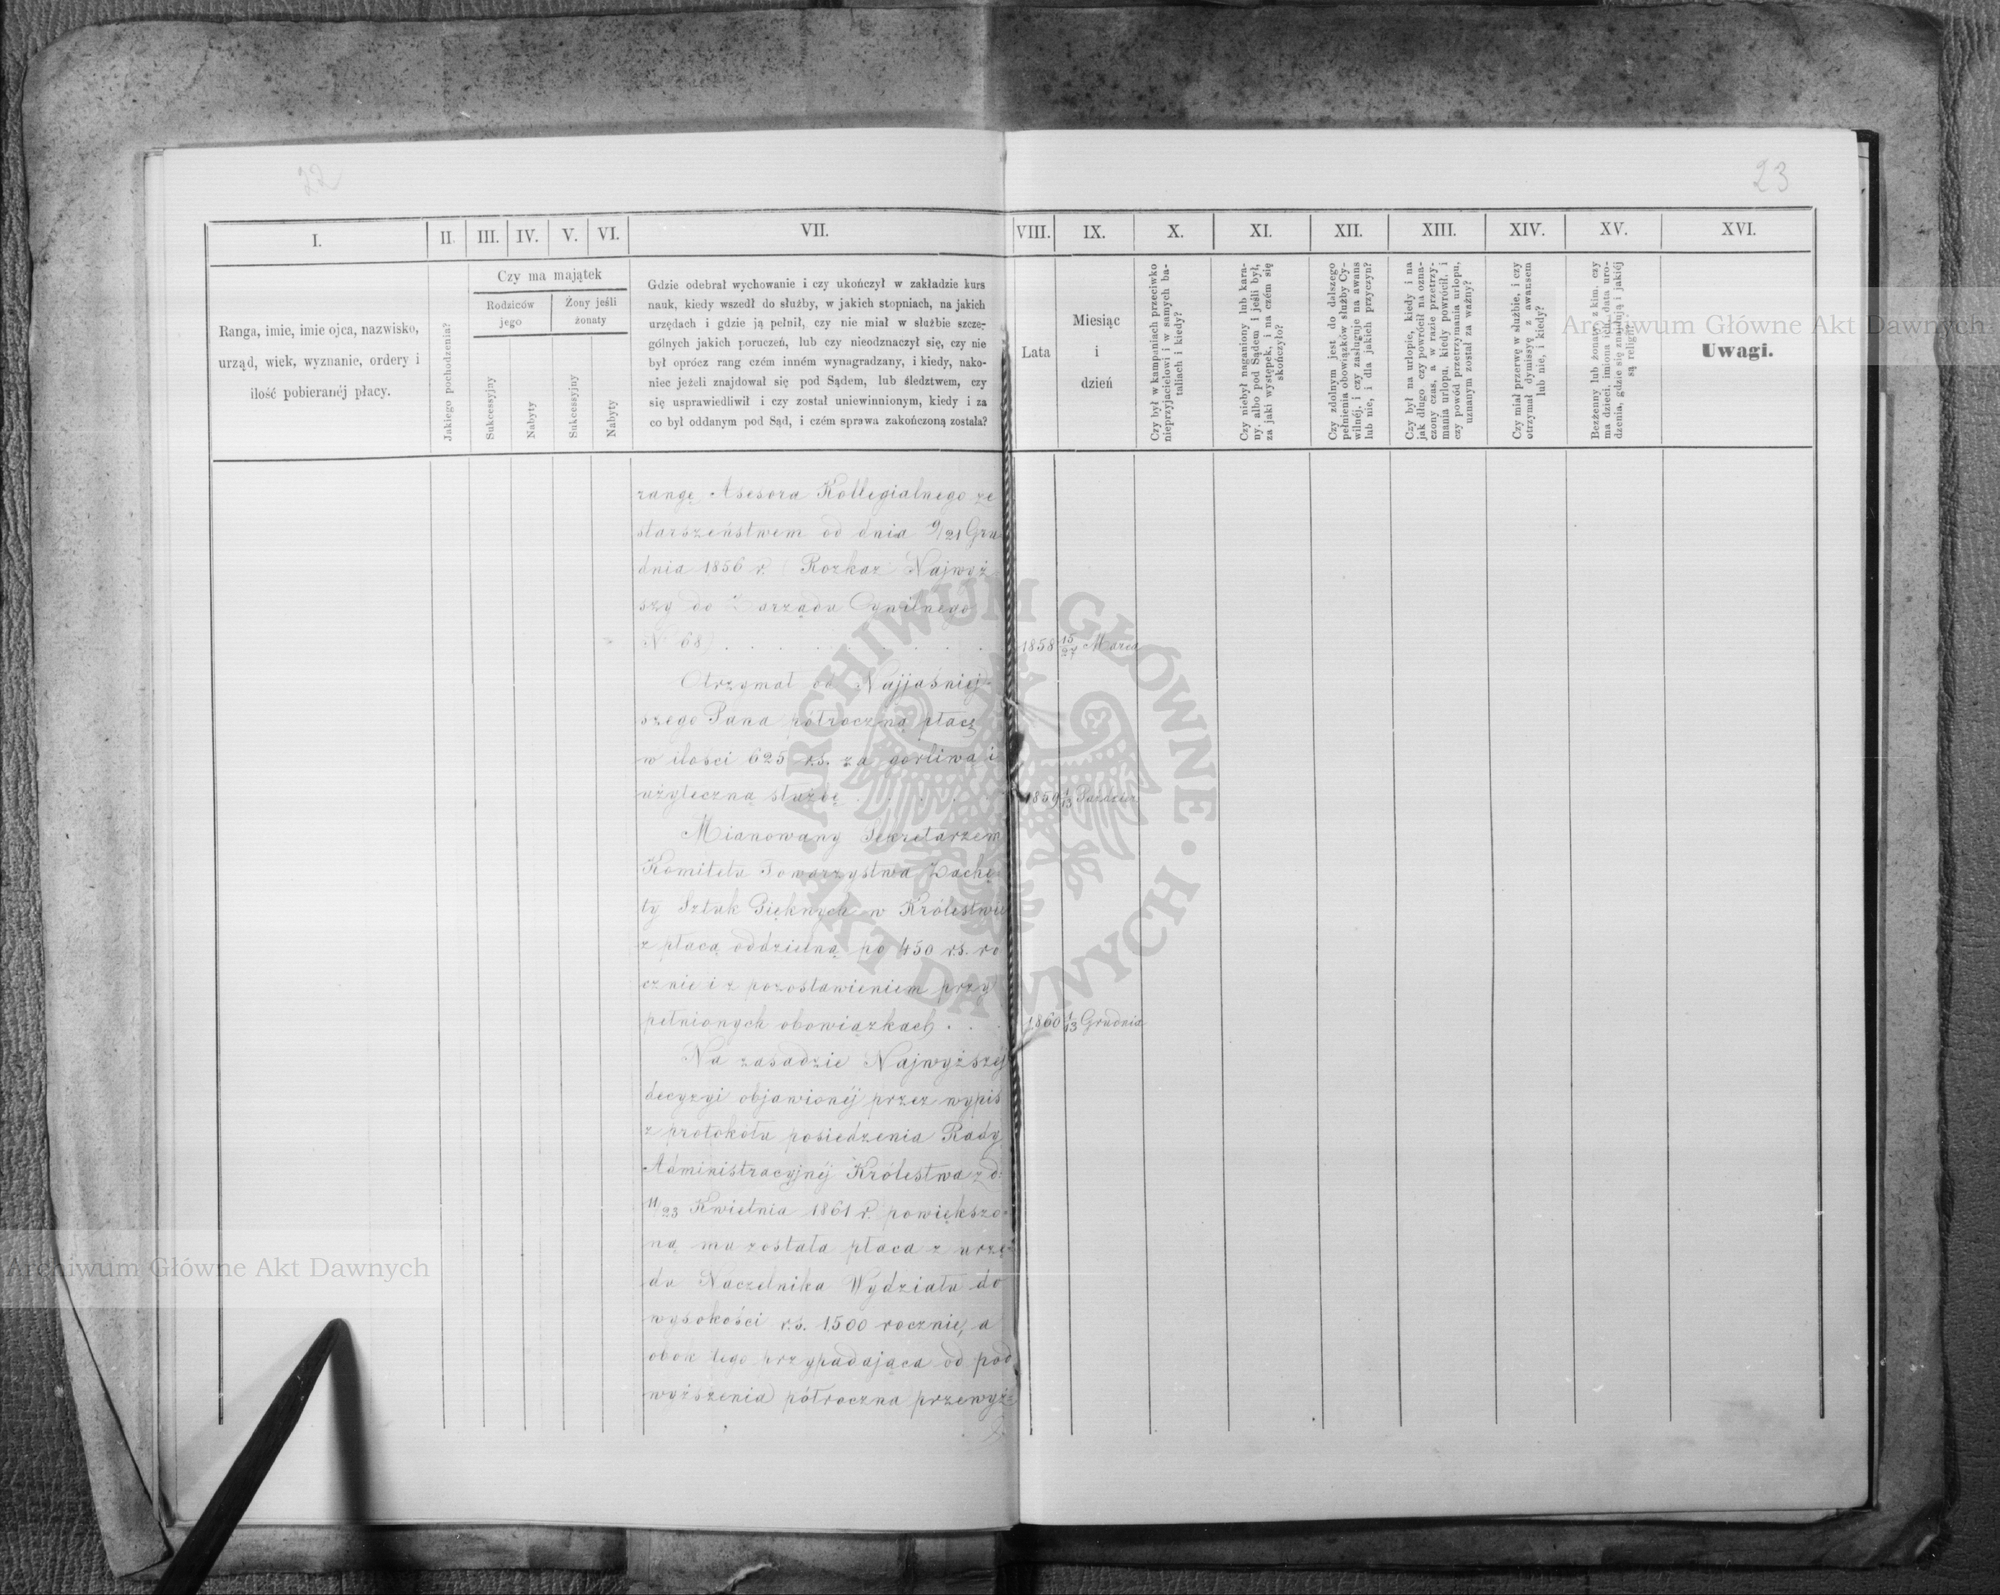 22
23
I.
II.
III.
IV.
V.
VI.
VII.
VIII.
IX.
X.
XI.
XII.
XIII.
XIV.
XV.
XVI.
Ranga, imie, imie ojca, nazwisko,
urząd, wiek, wyznanie, ordery i
ilość pobieranéj płacy.
Jakiego pochodzenia?
Czy ma majątek
Rodziców
jego
Żony jeśli
żonaty
Sukcessyjny
Nabyty
Sukcessyjny
Nabyty
Gdzie odebrał wychowanie i czy ukończył w zakładzie kurs
nauk, kiedy wszedł do służby, w jakich stopniach, na jakich
urzędach i gdzie ją pełnił, czy nie miał w służbie szcze-
gólnych jakich poruczeń, lub czy nieodznaczył się, czy nie
był oprócz rang czém inném wynagradzany, i kiedy, nako-
niec jeżeli znajdował się pod Sądem, lub śledztwem, czy
się usprawiedliwił i czy został uniewinnionym, kiedy i za
co był oddanym pod Sąd, i czém sprawa zakończoną została?
Lata
Miesiąc
i
dzień
Czy był w kampaniach przeciwko
nieprzyjacielowi i w samych ba-
taliach i kiedy?
Czy niebył naganiony lub kara-
ny, albo pod Sądem i jeśli był,
za jaki występek, i na czém się
skończyło?
Czy zdolnym jest do dalszego
pełnienia obowiązków służby Cy-
wilnéj, i czy zasługuje na awans
lub nie, i dla jakich przyczyn?
Czy był na urlopie, kiedy i na
jak długo czy powrócił na ozna-
czony czas, a w razie przetrzy-
mania urlopu, kiedy powrócił, i
czy powód przetrzymania urlopu,
uznanym został za ważny?
Czy miał przerwę w służbie, i czy
otrzymał dymissyę z awansem
lub nie, i kiedy?
Bezżenny lub żonaty, z kim, czy
ma dzieci, imiona ich, data uro-
dzenia, gdzie się znajdują i jakiéj
są religii?
Uwagi.
rangę Asesora Kollegialnego ze
starszeństwem od dnia 9/21 Gru
dnia 1856 r. (Rozkaz Najwyż
szy do Zarządu Cywilnego
N 68) . . . . . . . 1858 15/27 Marca
Otrzymał od Najjaśniej-
szego Pana półroczną płacę
w ilości 625 r.s. za gorliwą i
użyteczną służbę . . . . 1859 1/13
Mianowany Sekretarzem
Komitetu Towarzystwa Zachę-
ty Sztuk Pięknych w Królestwie
z płacą oddzielną po 450 r.s. ro
cznie i z pozostawieniem przy
pełnionych obowiązkach . . . 1860 1/13 Grudnia
Na zasadzie Najwyższéj
decyzyi objawionéj przez wypis
z protokółu posiedzenia Rady
Administracyjnéj Królestwa z d:
11/23 Kwietnia 1861 r. powiększo-
ną mu została płaca z urzę-
du Naczelnika Wydziału do
wysokości r.s. 1,500 rocznie, a
obok tego przypadająca od pod
wyższenia półroczna przewyż-
ARCHIWUM GŁÓWNE · AKT DAWNYCH ·
Archiwum Główne Akt Dawnych
Archiwum Główne Akt Dawnych